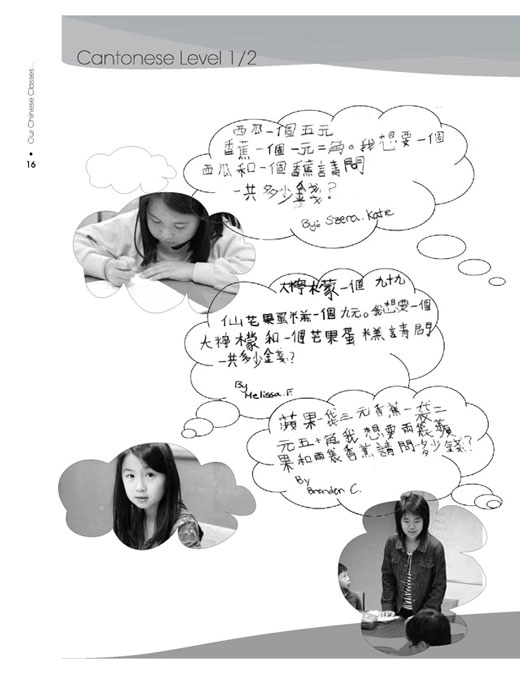 Our Chinese Classes...
•
16
Cantonese Level 1/2
西瓜一個五元
香蕉一個一元二角。我想要一個
西瓜和一個香蕉請問
一共多少錢?
By: Szera. Katie
大檸檬一個 九十九
仙芒果蛋糕一個九元。我想要一個
大檸檬和一個芒果蛋糕請問
一共多少錢?
By
Melissa. F.
蘋果一袋三元香蕉一袋二
元五十角我想要兩袋蘋
果和兩袋香蕉請問多少錢?
By
Brenden C.